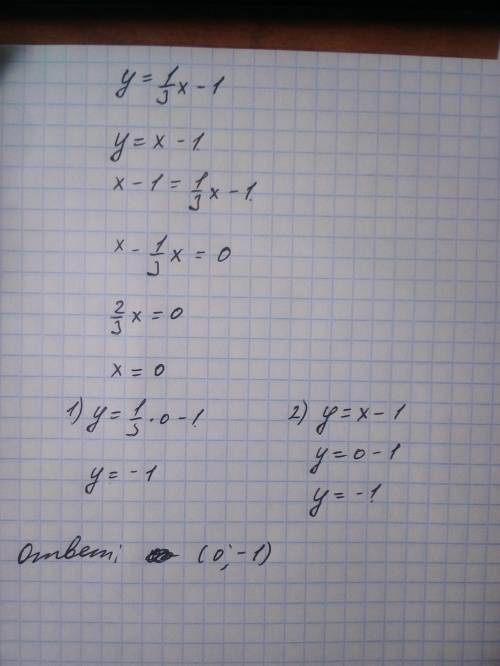 y = 1/3 x - 1
y = x - 1
x - 1 = 1/3 x - 1
x - 1/3 x = 0
2/3 x = 0
x = 0
1) y = 1/3 · 0 - 1
y = -1
2) y = x - 1
y = 0 - 1
y = -1
Ответ: (0; -1)